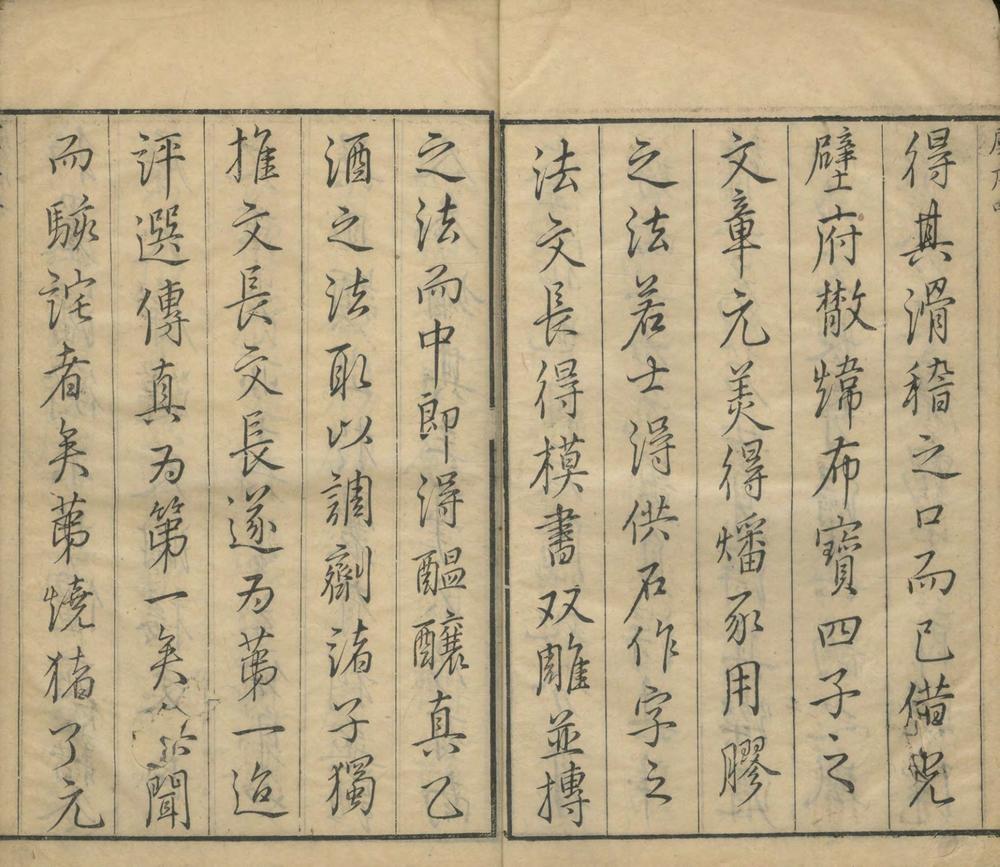 得其滑稽之口而已備光
壁府散煒布寶四子之
文章元美得燔豕用膠
之法若士得供石作字之
法文長得模書双雕並摶
之法而中郎得醞釀真乙
酒之法取以調劑諸子獨
推文長文長遂为苐一迨
評選傳真为第一矣 聞
而駭詫者矣苐燒猪了元